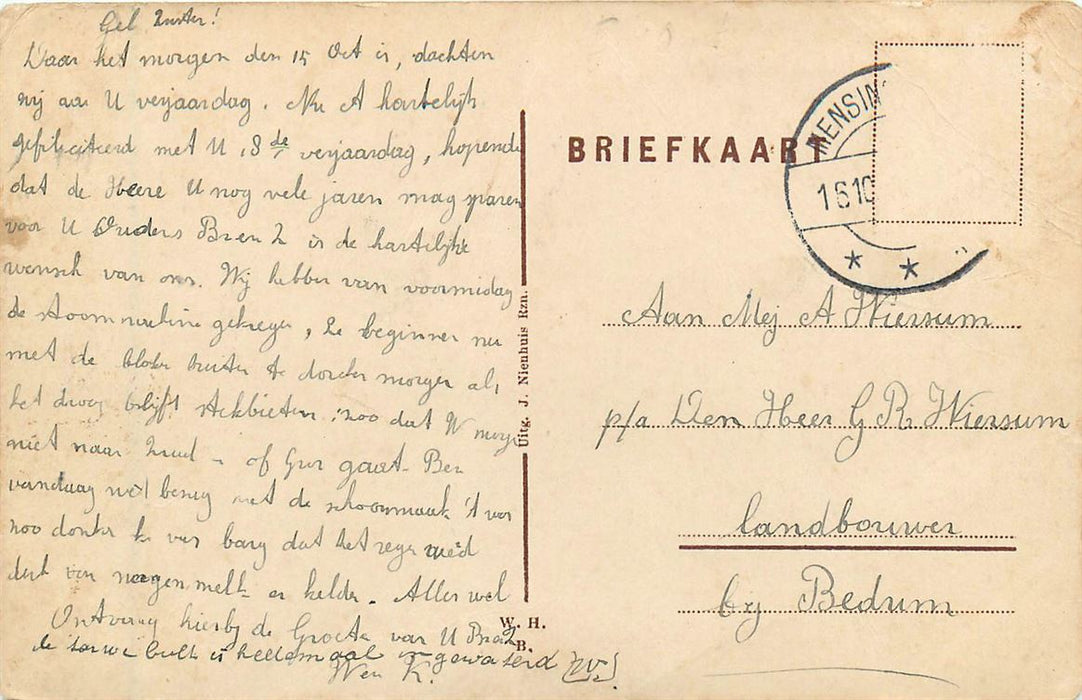 Gel Zuster!
Daar het morgen den 15 Oct is, dachten
wij aan U verjaardag. Nu A hartelijk
gefiliciteerd met U 18de verjaardag, hopende
dat de Heere U nog vele jaren mag sparen
voor U Ouders Br en Z is de hartelijke
wensch van ons. Wij hebben van voormiddag
de stoommachine gekregen, Ze beginnen nu
met de te dorschen morgen als
het droog blijft stekbieten, zoo dat W morgen
niet naar Zuid - of gaat. Ben
vandaag wel bezig met de schoonmaak 't was
zoo donker ik was bang dat het regen
van morgen melk en helder. Alles wel
Ontvang hierbij de Groete van U Br en Z
de tarwe bult is heelemaal ingewaterd
W en K.
BRIEFKAART
MENSIN
16 10
Uitg. J. Nienhuis Rzn.
W. H.
B.
Aan Mej A Wiersum
p/a Den Heer G R Wiersum
landbouwer
by Bedum